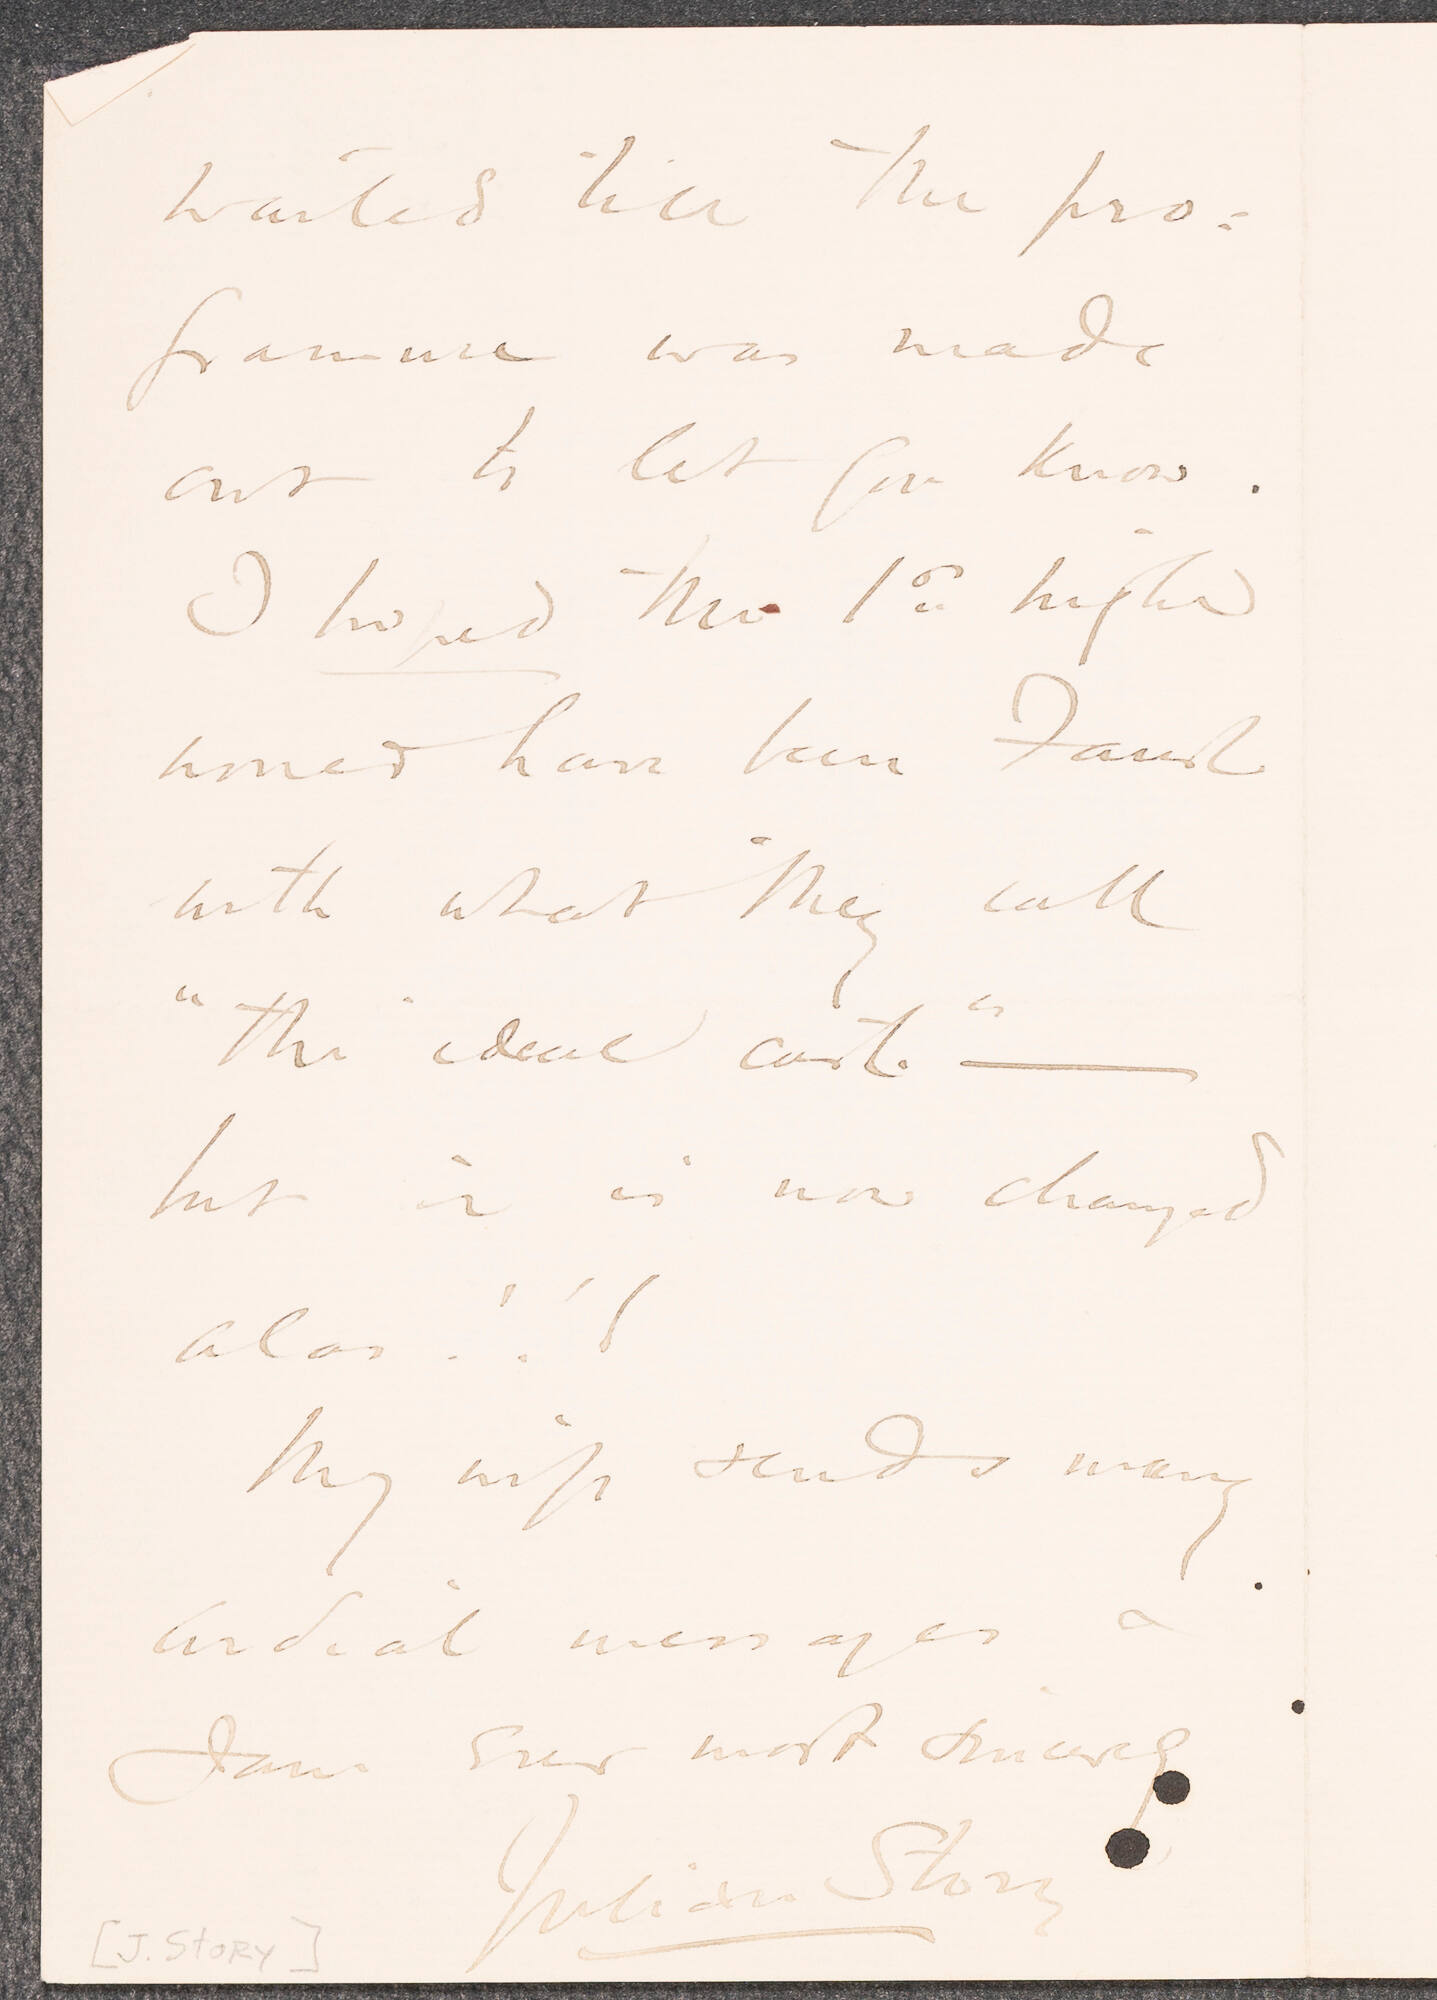 waited till the pro-
gramme was made
out to let you know.
I hoped the 1st night
would have been Faust
with what they call
"the ideal cast." —
but it is now changed
alas!!!
My wife sends many
cordial messages &
I am ever most sincerely
Julian Story
[J. STORY]